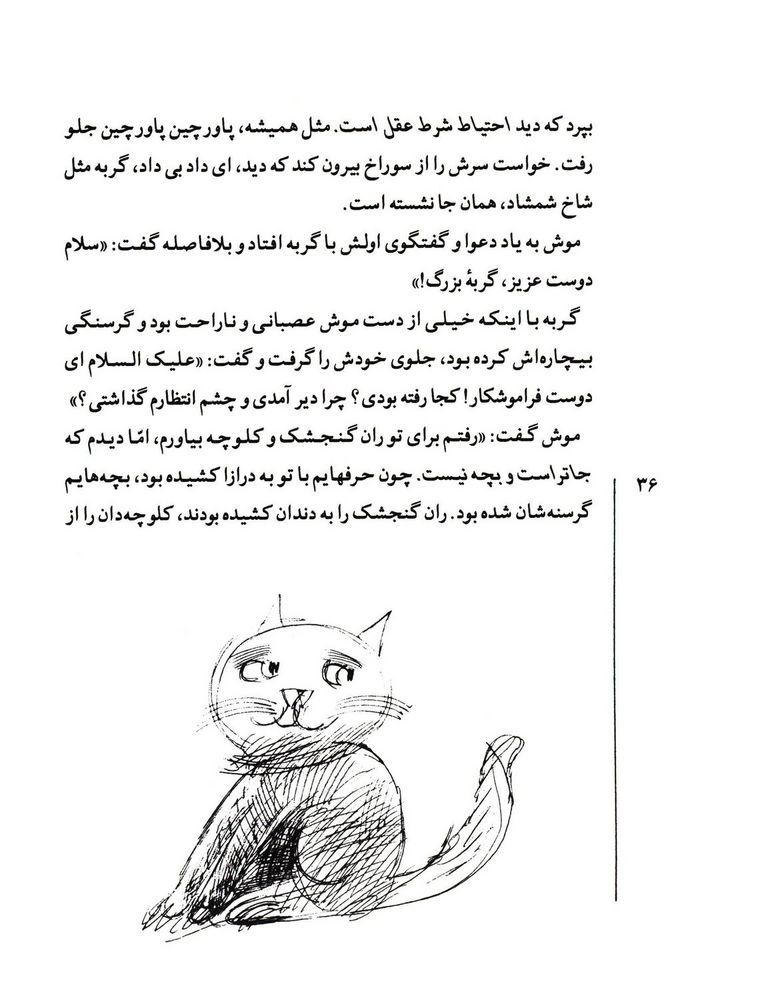 بپرد که دید احتیاط شرط عقل است. مثل همیشه، پاورچین پاورچین جلو
رفت. خواست سرش را از سوراخ بیرون کند که دید، ای داد بی داد، گربه مثل
شاخ شمشاد، همان جا نشسته است.
موش به یاد دعوا و گفتگوی اولش با گربه افتاد و بلافاصله گفت: «سلام
دوست عزیز، گربهٔ بزرگ!»
گربه با اینکه خیلی از دست موش عصبانی و ناراحت بود و گرسنگی
بیچاره‌اش کرده بود، جلوی خودش را گرفت و گفت: «علیک السلام ای
دوست فراموشکار! کجا رفته بودی؟ چرا دیر آمدی و چشم انتظارم گذاشتی؟»
موش گفت: «رفتم برای تو ران گنجشک و کلوچه بیاورم، امّا دیدم که
جا تر است و بچه نیست. چون حرفهایم با تو به درازا کشیده بود، بچه‌هایم
گرسنه‌شان شده بود. ران گنجشک را به دندان کشیده بودند، کلوچه‌دان را از
۳۶